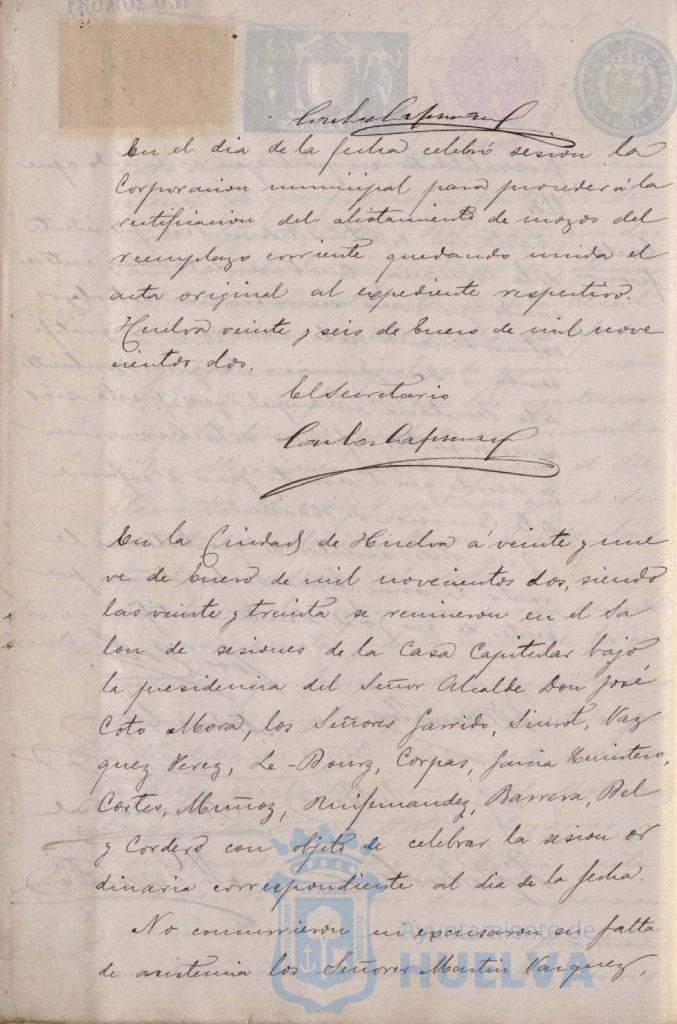 Carlos
En el dia de la fecha celebró sesion la
Corporacion municipal para proceder á la
rectificacion del alistamiento de mozos del
reemplazo corriente quedando unida el
acta original al expediente respectivo.
Huelva veinte y seis de Enero de mil nove
cientos dos.
El Secretario
Carlos
En la Ciudad de Huelva á veinte y nue
ve de Enero de mil novecientos dos, siendo
las veinte y treinta se reunieron en el Sa
lon de sesiones de la Casa Capitular bajo
la presidencia del Señor Alcalde Don José
Coto Mora, los Señores Garrido, Siurot, Vaz
quez Perez, Le-Bourg, Corpas, Garcia Quintero,
Cortes, Muñoz, Ruifernandez, Barrera, Bel
y Cordero con objeto de celebrar la sesion or
dinaria correspondiente al dia de la fecha.
No concurrieron ni excusaron su falta
de asistencia los Señores Martin Vazquez,
Ayuntamiento de
HUELVA